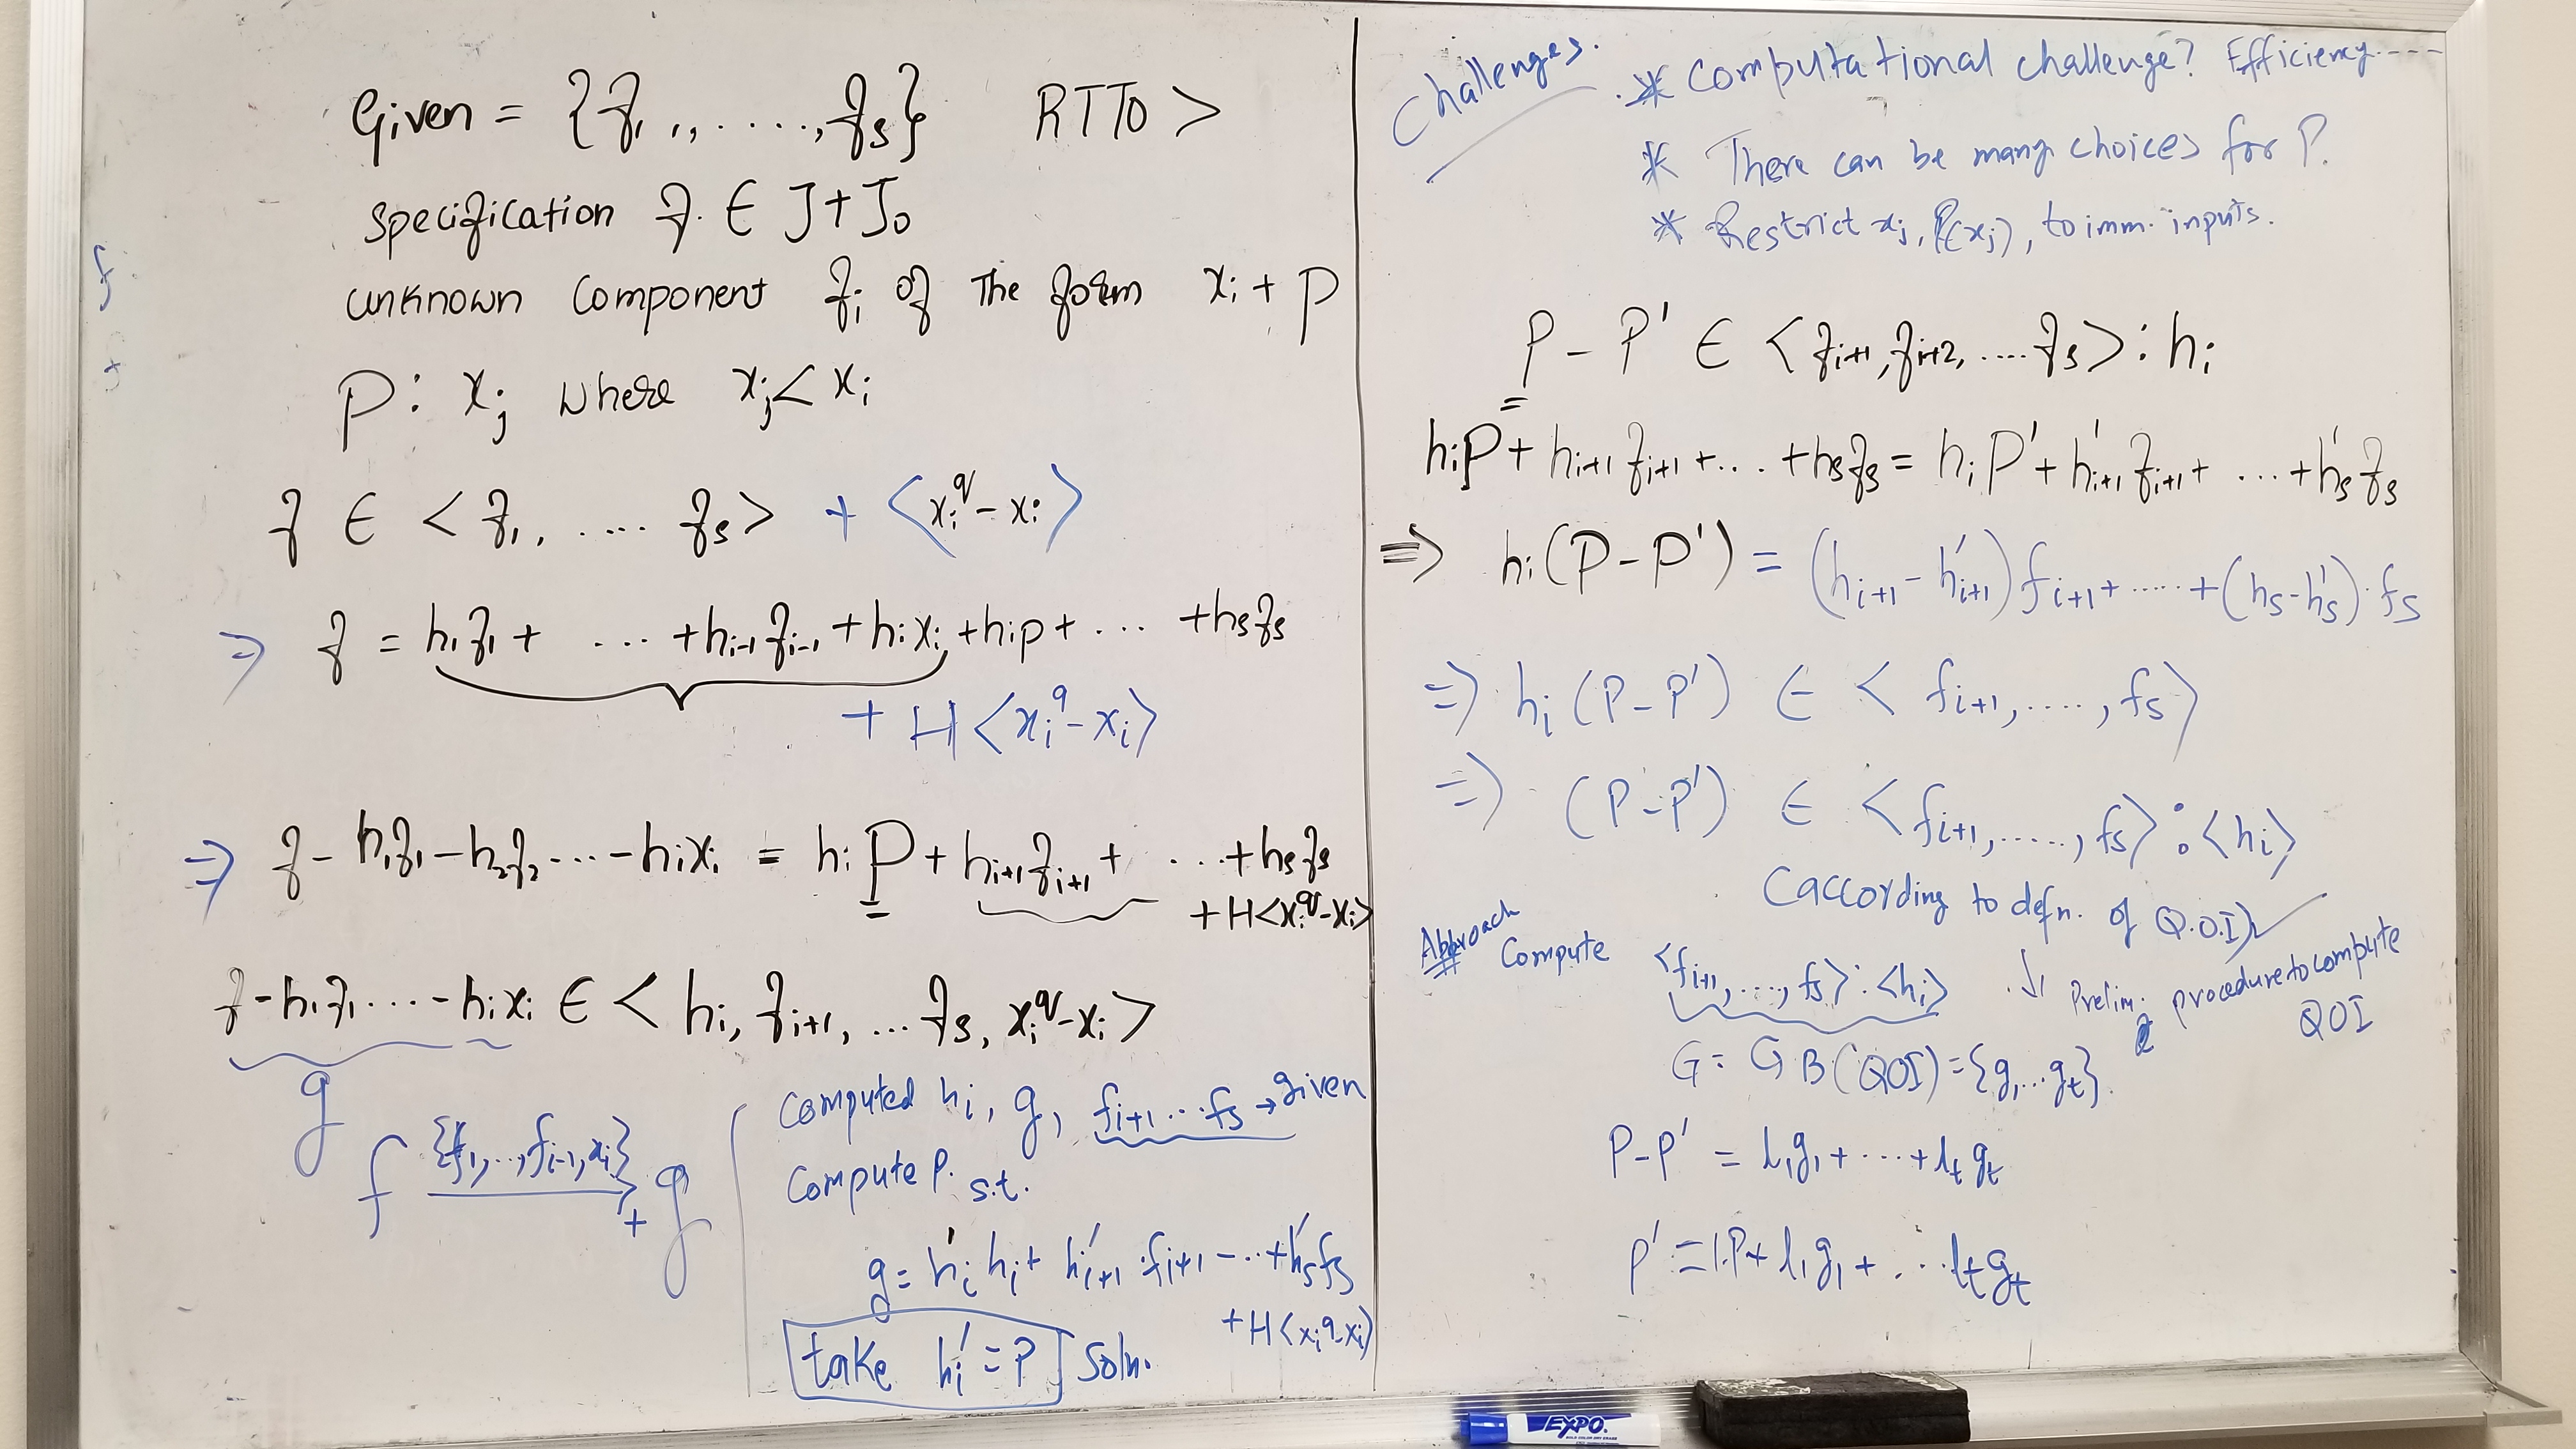 Given = {f₁,, ....., fₛ} RTTO >
Specification f. ∈ J + J₀
unknown component fᵢ of the form xᵢ + P
P: xⱼ where xⱼ < xᵢ
f ∈ < f₁, ..... fₛ > + <xᵢ^q - xᵢ>
⇒ f = h₁f₁ + ... + hᵢ₋₁fᵢ₋₁ + hᵢxᵢ + hᵢp + ... + hₛfₛ
+ H<xᵢ^q - xᵢ>
⇒ f - h₁f₁ - h₂f₂ ... - hᵢxᵢ = hᵢP + hᵢ₊₁fᵢ₊₁ + ... + hₛfₛ
+ H<xᵢ^q - xᵢ>
f - h₁f₁ ... - hᵢxᵢ ∈ < hᵢ, fᵢ₊₁, ... fₛ, xᵢ^q - xᵢ >
g
f {f₁,..,fᵢ₋₁,xᵢ} →₊ g
Computed hᵢ, g, fᵢ₊₁ ... fₛ → given
Compute P. s.t.
g = hᵢ'hᵢ + h'ᵢ₊₁.fᵢ₊₁ - ... + h'ₛfₛ
+ H<xᵢ^q - xᵢ>
take hᵢ' = P Soln.
Challenges.
* Computational challenge? Efficiency----
* There can be many choices for P.
* Restrict xⱼ, P(xⱼ), to imm. inputs.
P - P' ∈ < fᵢ₊₁, fᵢ₊₂, .... fₛ > : hᵢ
hᵢP + hᵢ₊₁fᵢ₊₁ + ... + hₛfₛ = hᵢP' + h'ᵢ₊₁fᵢ₊₁ + ... + h'ₛfₛ
⇒ hᵢ(P - P') = (hᵢ₊₁ - h'ᵢ₊₁)fᵢ₊₁ + ..... + (hₛ - h'ₛ).fₛ
⇒ hᵢ(P - P') ∈ < fᵢ₊₁, ...., fₛ >
⇒ (P - P') ∈ < fᵢ₊₁, ....., fₛ > : <hᵢ>
(according to defn. of Q.O.I) ✓
Approach
Compute <fᵢ₊₁, ..., fₛ> : <hᵢ> ↓ Prelim: procedure to compute
QOI
G = GB(QOI) = {g₁ ... gₜ}.
P - P' = l₁g₁ + .... + lₜgₜ
P' = 1.P + l₁g₁ + ... lₜgₜ
EXPO.